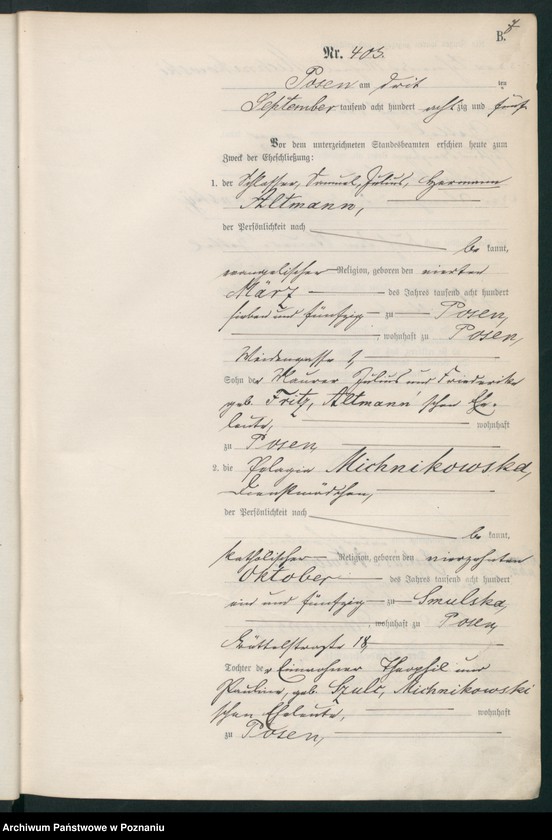 B.
Nr. 403.
Posen am drit ten
September tausend acht hundert achtzig und fünf
Vor dem unterzeichneten Standesbeamten erschien heute zum
Zweck der Eheschließung:
1. der Schlosser, Samuel, Julius, Hermann
Altmann,
der Persönlichkeit nach
be kannt,
evangelischer Religion, geboren den vierten
März des Jahres tausend acht hundert
sieben und fünfzig zu Posen,
, wohnhaft zu Posen,
Weidengasse
Sohn der Maurer Julius und Friederike
geb. Fritz, Altmann'schen Ehe-
leute, wohnhaft
zu Posen,
2. die Pelagia Michnikowska,
Dienstmädchen,
der Persönlichkeit nach
be kannt,
katholischer Religion, geboren den vierzehnten
Oktober des Jahres tausend acht hundert
ein und fünfzig zu Smulsko,
, wohnhaft zu Posen,
Büttelstraße 18,
Tochter der Einwohner Theophil und
Pauline, geb. Szulc, Michnikowski
schen Eheleute, wohnhaft
zu Posen,
Archiwum Państwowe w Poznaniu